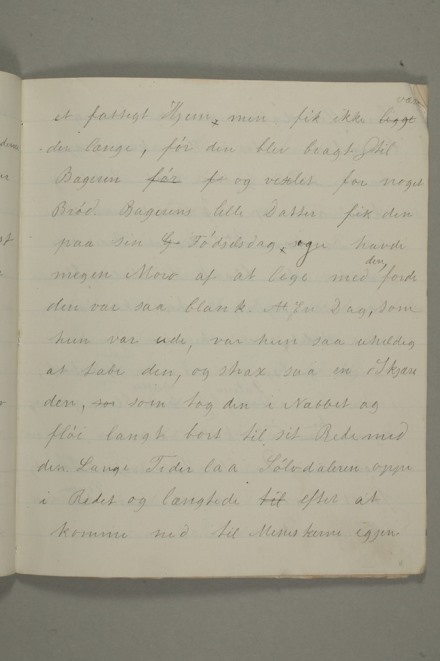 være
et fattigt Hjem, men fik ikke ligge
der længe, før den blev bragt til
Bageren før f og vexlet for noget
Brød. Bagerens lille Datter fik den
paa sin G Fødselsdag, og hun havde
megen Moro af at lege med den, fordi
den var saa blank. En Dag, som
hun var ude, var hun saa uheldig
at tabe den, og strax saa en Skjære
den, so som tog den i Næbbet og
fløi langt bort til sit Rede med
den Lange Tider laa Sølvdaleren oppe
i Redet og længtede til efter at
komme ned til Menneskerne igjen